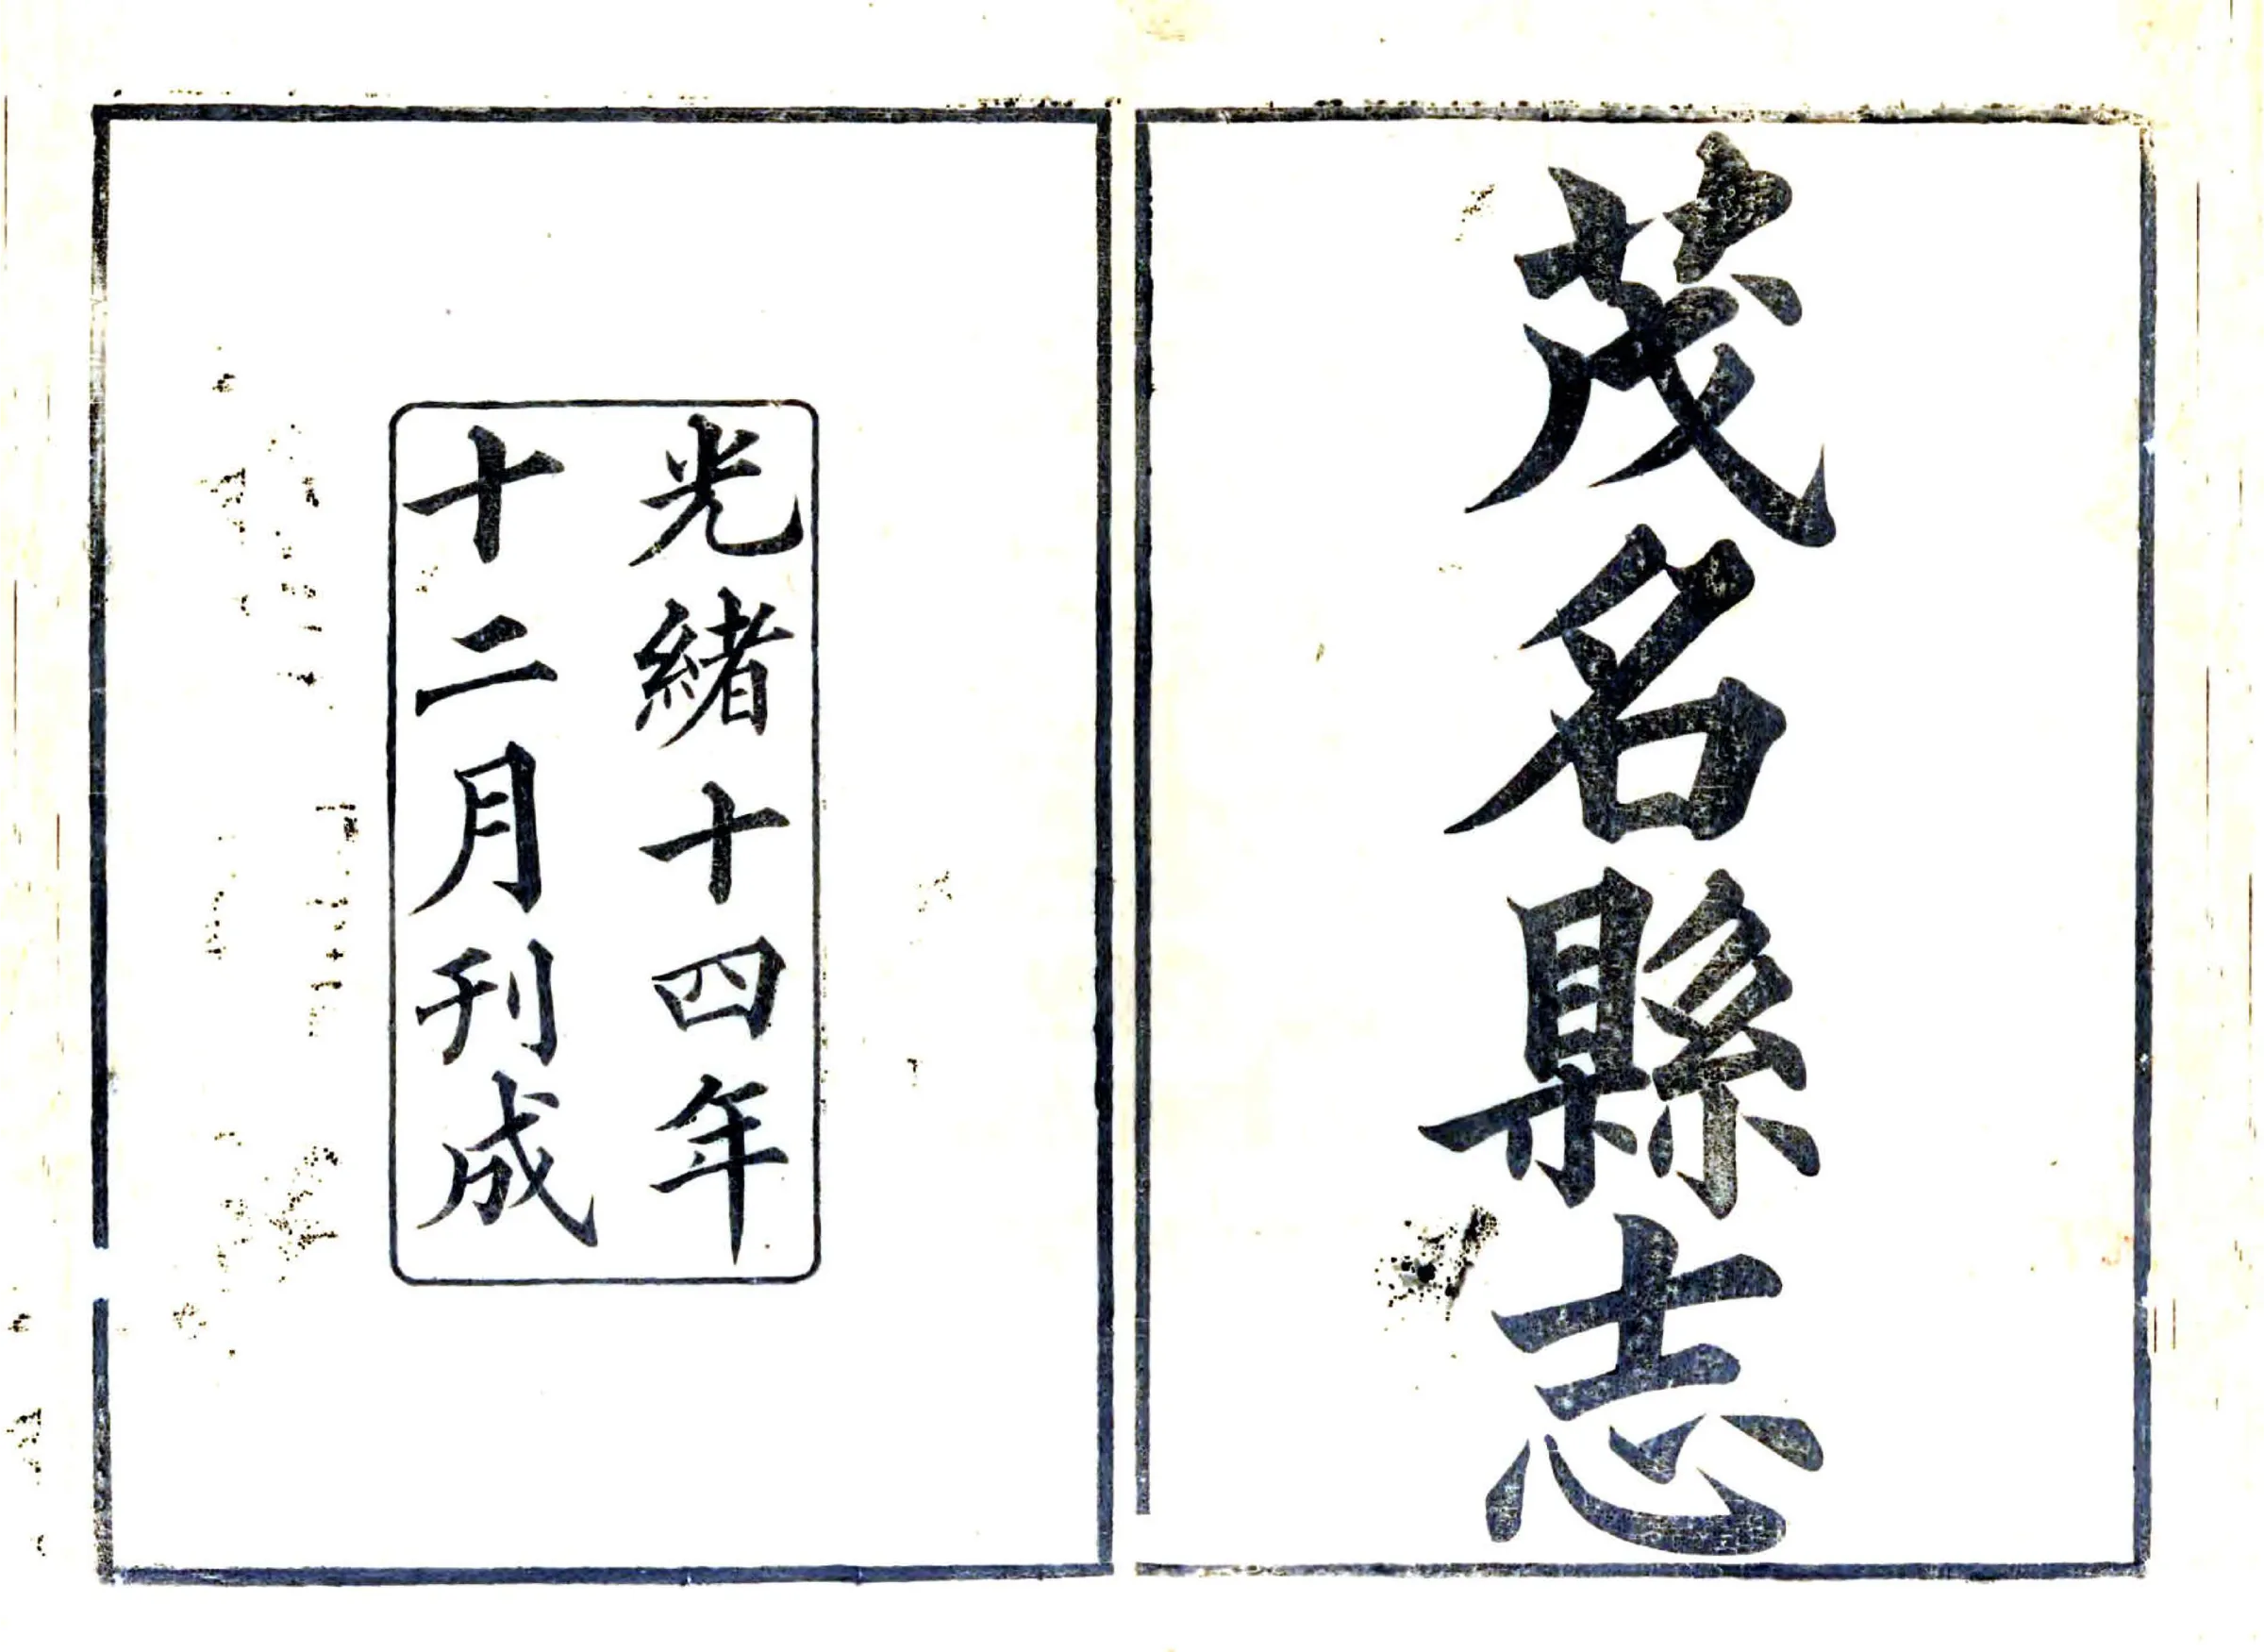 茂名縣志
光緒十四年
十二月刊成